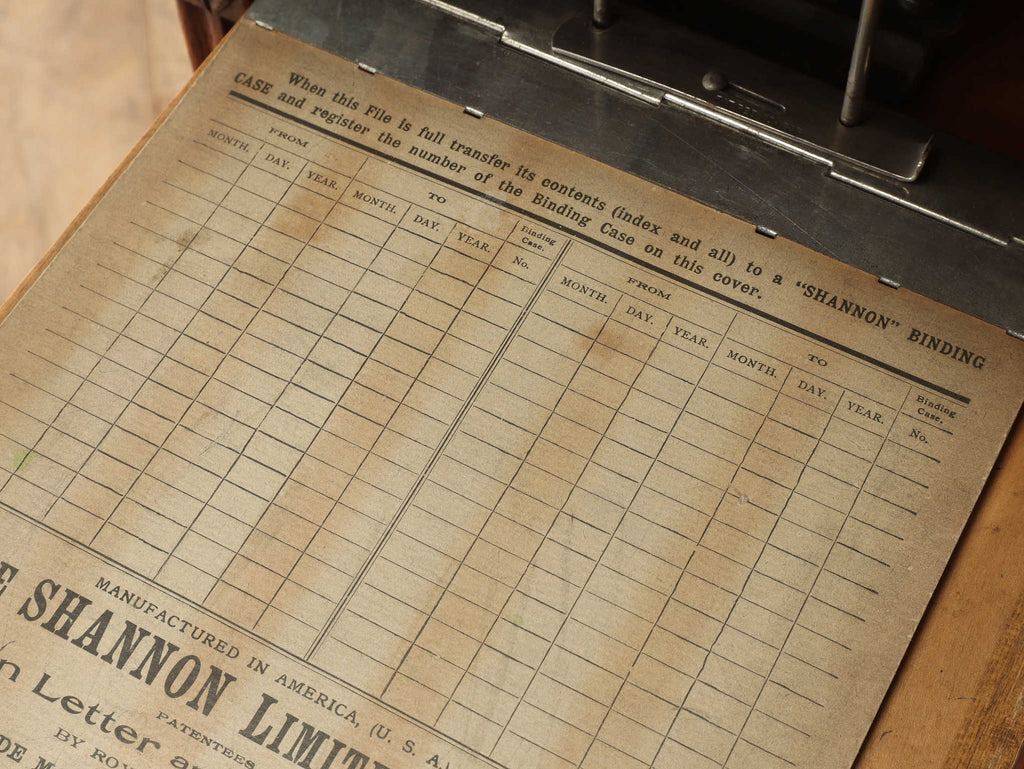 When this File is full transfer its contents (index and all) to a “SHANNON” BINDING
CASE and register the number of the Binding Case on this cover.
FROM TO Binding Case.
MONTH. DAY. YEAR. MONTH. DAY. YEAR. No.
FROM TO Binding Case.
MONTH. DAY. YEAR. MONTH. DAY. YEAR. No.
MANUFACTURED IN AMERICA, (U. S. A.)
SHANNON
PATENTEES
Letter
BY